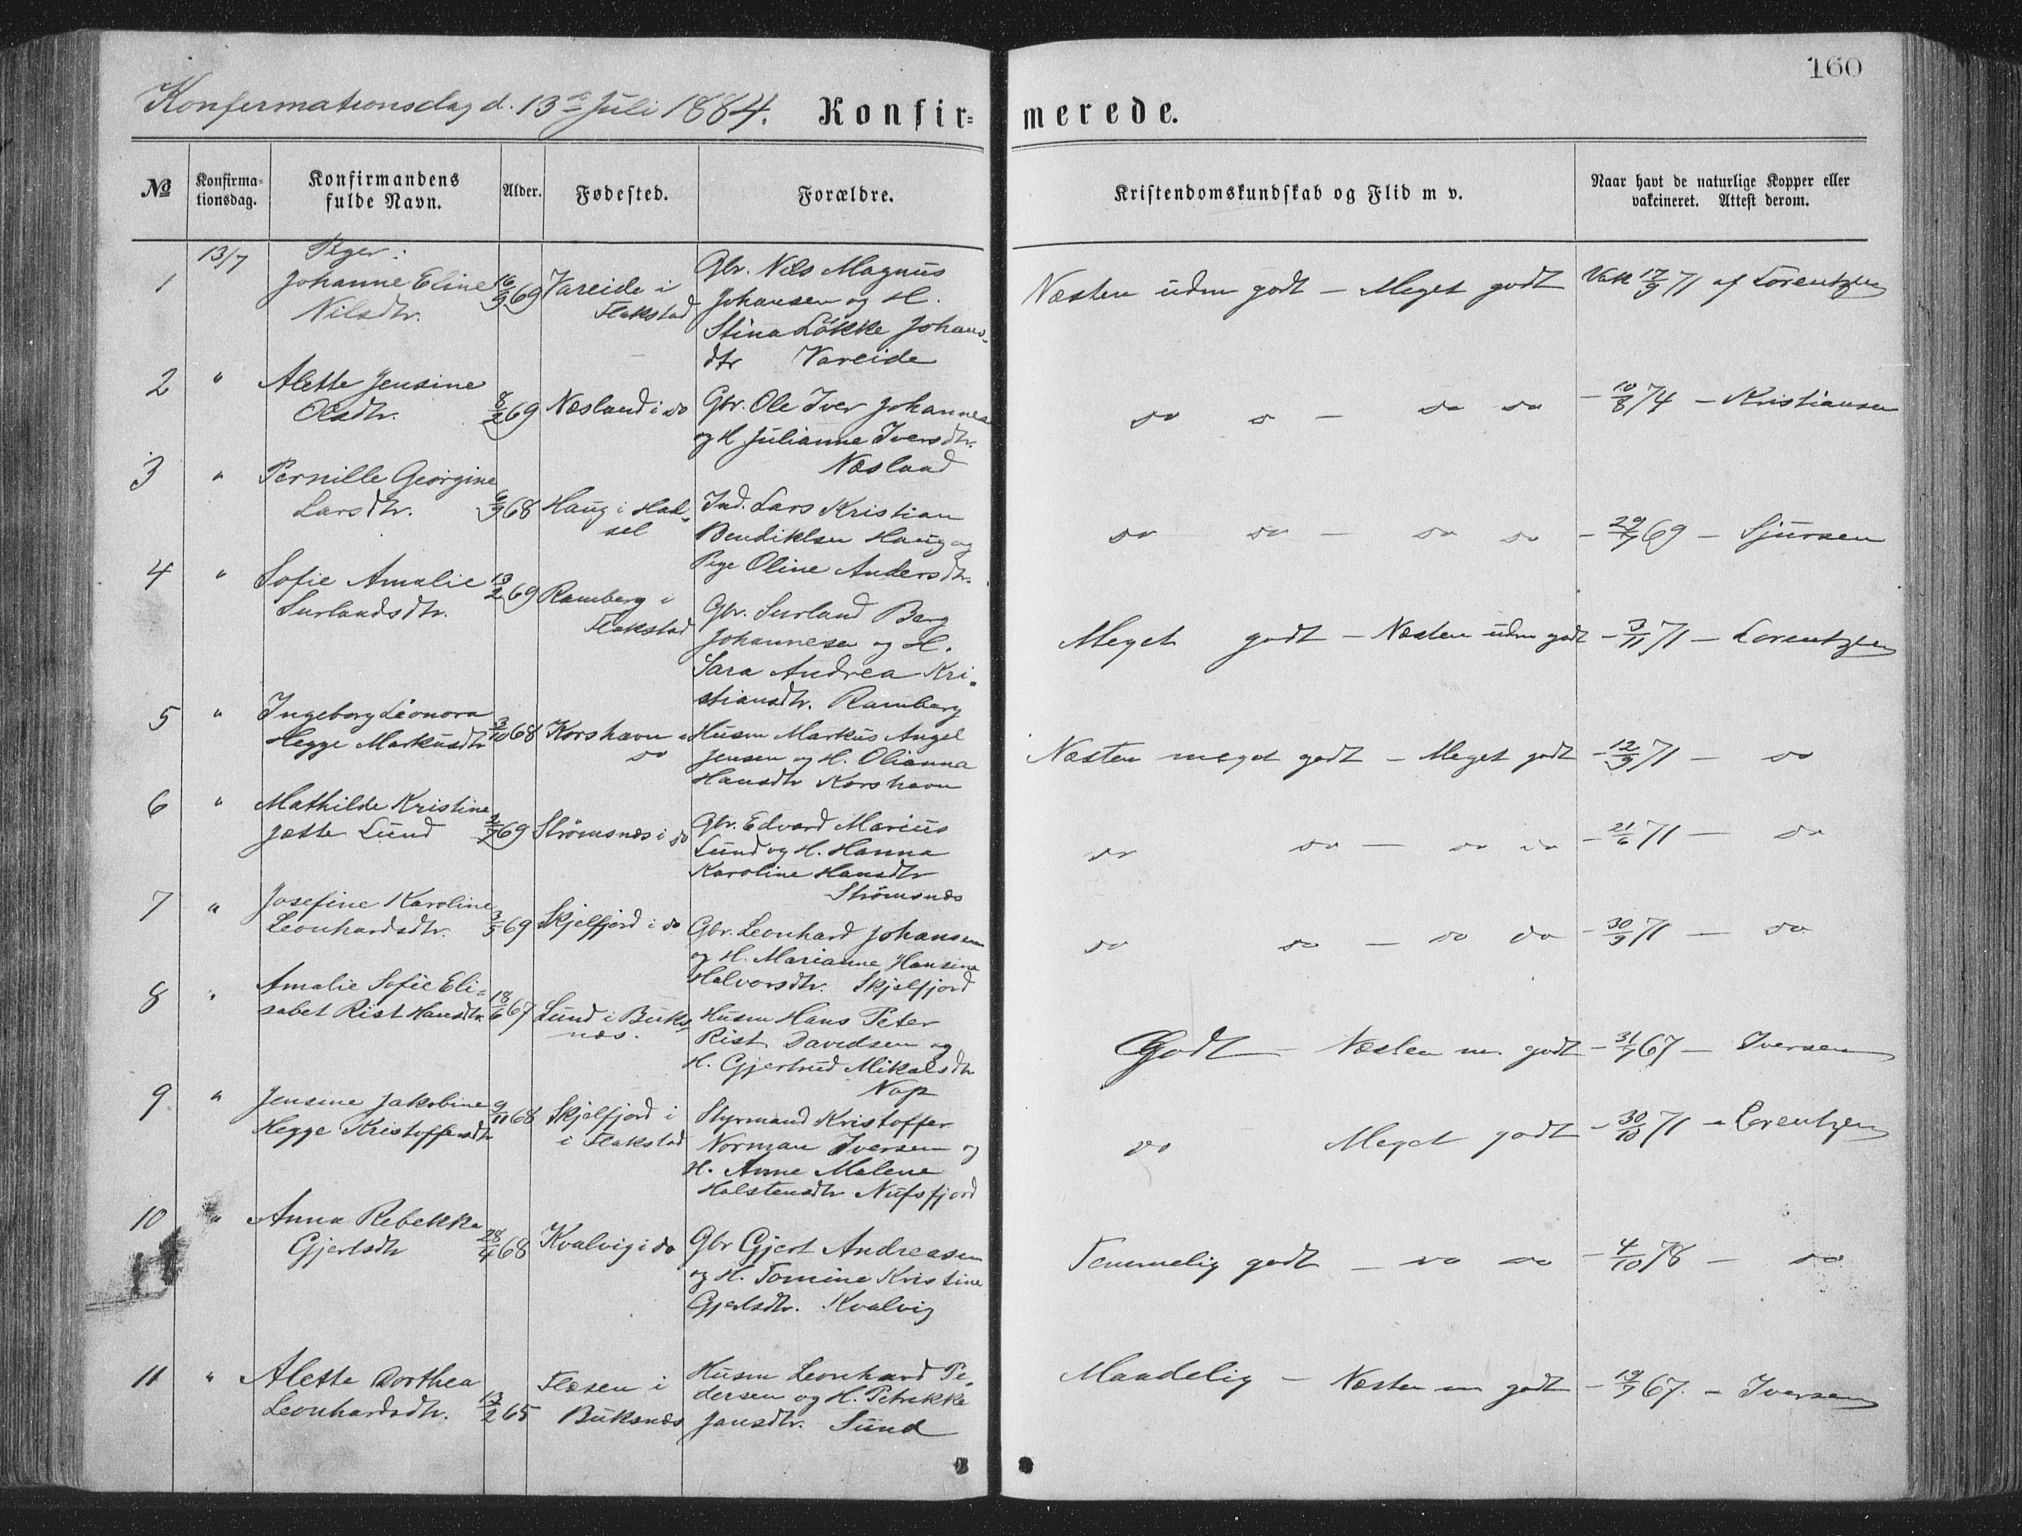 160
Konfirmationsdag d. 13de Juli 1884. Konfir=
merede.
No
Konfirma=
tionsdag.
Konfirmandens
fulde Navn.
Alder.
Fødested.
Forældre.
Kristendomskundskab og Flid m v.
Naar havt de naturlige Kopper eller
vakcineret. Attest derom.
13/7
Piger:
1 Johanne Eline
Nilsdtr.
16/9 69
Vareide i
Flakstad
Gbr. Nils Magnus
Johansen og H.
Stina Løkke Johans-
dtr Vareide
Næsten udm godt – Meget godt
Vak 17/9 71 af Lorentzen
2 " Alette Jensine
Olsdtr.
8/2 69
Næsland i do
Gbr. Ole Iver Johannes
og H. Julianne Iversdtr.
Næsland
do do – do do
– 10/8 74 – Kristiansen
3 " Pernille Georgine
Larsdtr.
6/9 68
Haug i Had-
sel
Ind. Lars Kristian
Bendiktsen Haug og
Pige Oline Andersdtr.
do do – do do
– 69 – Sjursen
4 " Sofie Amalie
Surlandsdtr.
13/2 69
Ramberg i
Flakstad
Gbr. Surland Berg
Johannesen og H.
Sara Andrea Kri-
stiansdtr. Ramberg
Meget godt – Næsten udm godt
– 3/11 71 – Lorentzen
5 " Ingeborg Leonora
Hegge Markusdtr
3/10 68
Korshavn i
do
Husm Markus Angel
Jensen og H. Olianna
Hansdtr Korshavn
Næsten meget godt – Meget godt
– 12/9 71 – do
6 " Mathilde Kristine
Jætte Lund
69
Strømsnæs i do
Gbr. Edvard Marius
Lund og H. Hanna
Karoline Hansdtr
Strømsnæs
do do – do do
– 21/6 71 – do
7 " Josefine Karoline
Leonhardsdtr.
3/5 69
Skjelfjord i do
Gbr. Leonhard Johansen
og H. Marianne Hansine
Halvorsdtr. Skjelfjord
do do – do do
– 30/9 71 – do
8 " Amalie Sofie Eli=
sabet Rist Hansdtr
18/6 67
Lund i Buks-
næs.
Husm Hans Peter
Rist Davidsen og
H. Gjertrud Mikalsdtr
Nap
Godt – Næsten m. godt
– 67 – Iversen
9 " Jensine Jakobine
Hegge Kristoffersdtr
9/11 68
Skjelfjord i
i Flakstad
Styrmand Kristoffer
Norman Iversen og
H. Anne Malene
Holstensdtr Nufsfjord
do Meget godt
– 30/10 71 – Lorentzen
10 " Anna Rebekka
Gjertsdtr
28/4 68
Kvalvig i do
Gbr Gjert Andreasen
og H. Tomine Kristine
Gjertsdtr. Kvalvig
Temmelig godt – do do
– 4/10 78 – do
11 " Alette Dorthea
Leonhardsdtr.
13/2 65
Flæsen i
Buksnæs
Husm Leonhard Pe-
dersen og H. Petrikke
Jansdtr. Sund
Maadelig – Næsten m godt
– 19/7 67. – Iversen